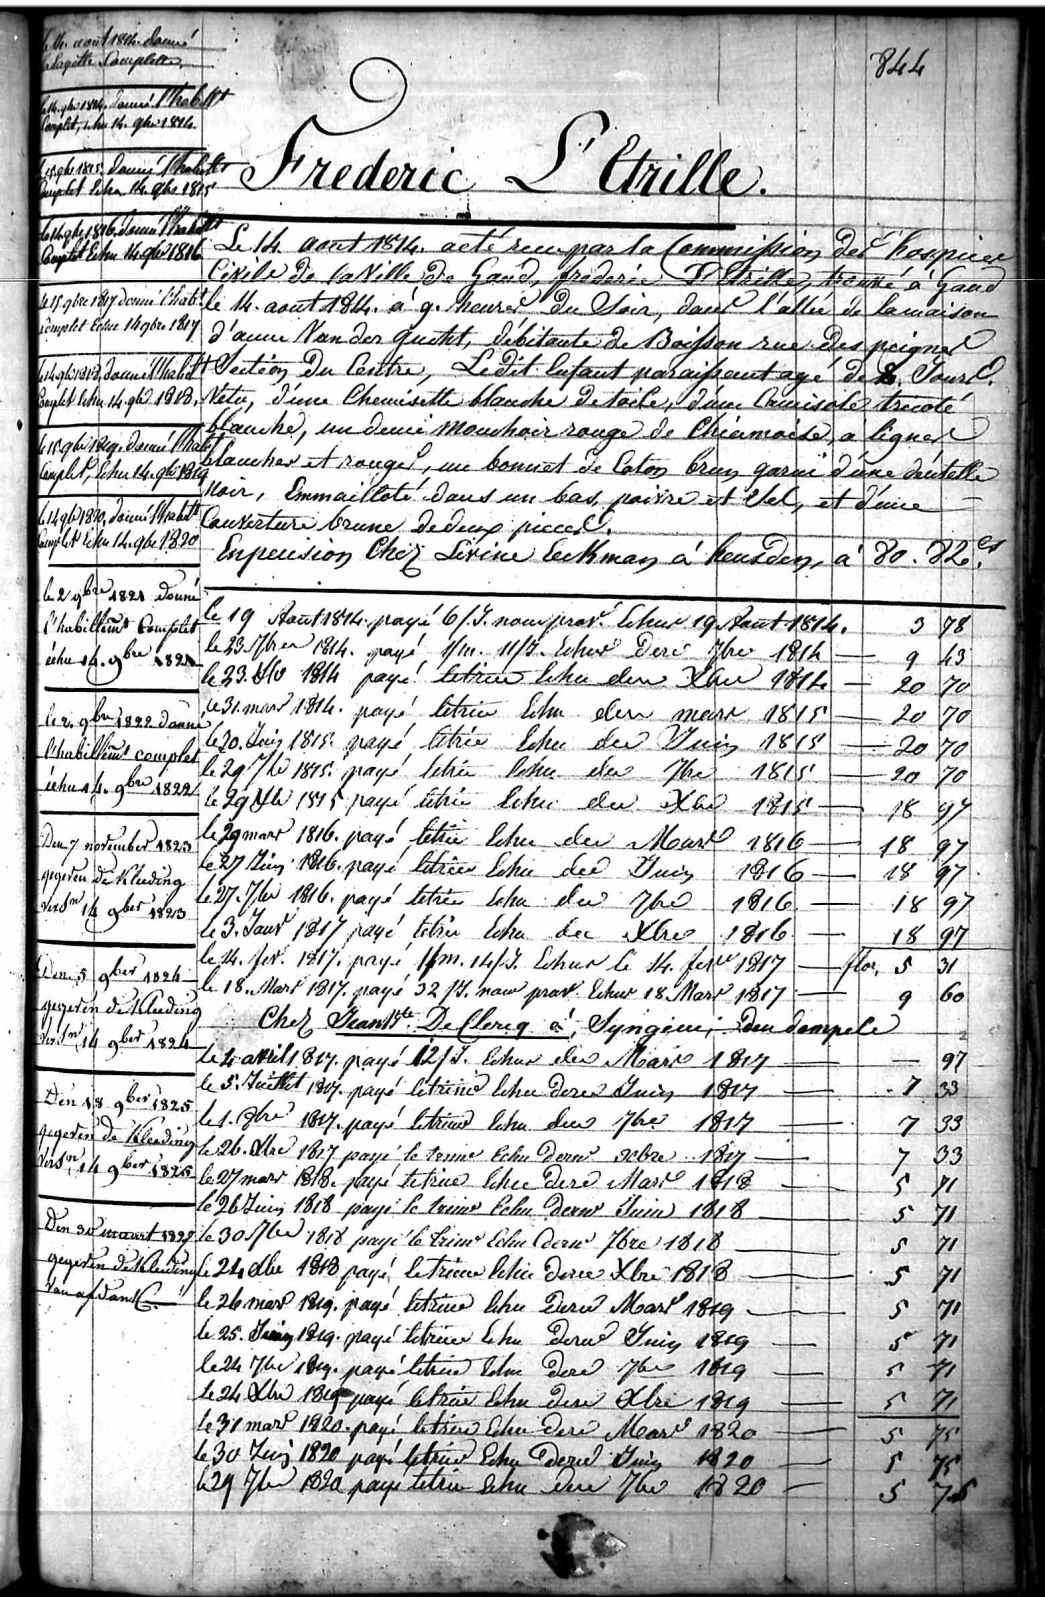 844
Frederic L'Etrille.
le 14. aout 1814. donné
la layette Complette.
le 14. 9bre 1814. donné l'habillt
Complet, échu 14. 9bre 1814.
le 15. 9bre 1815. donné l'habillt
Complet Echu 14. 9bre 1815
le 14 9bre 1816. donné l'habillt
Complet Echu 14 9bre 1816
le 15. 9bre 1817 donné l'habt
Complet Echu 14 9bre 1817
le 14 9bre 1818, donné l'habillt
Complet Echu 14. 9bre 1818.
le 15 9bre 1819. donné l'habt
Complet, Echu 14. 9bre 1819
le 14 9bre 1820, donné l'habt
Complet Echu 14. 9bre 1820
le 2 9bre 1821 donné
l'habillemt Complet
échu 14. 9bre 1821
le 2. 9bre 1822 donné
l'habillemt complet
échu 14. 9bre 1822
Den 7 november 1823
gegeven de Kleeding
versn 14 9ber 1823
Den 5 9ber 1824
gegeven de Kleeding
versn 14 9ber 1824
Den 18 9ber 1825
gegeven de Kleeding
versn 14 9ber 1825
Den 30 maart 1827
gegeven de Kleeding
Le 14. aout 1814. acté recu par la Commission des hospices
Civils de la Ville de Gand, frederic L'Etrille, trouvé à Gand
le 14. aout 1814. à 9. heures du Soir, dans l'allée de la maison
d'anne Van der gucht, débitante de Boisson rue des peignes
Section du Centre, Ledit Enfant paraissant agé de 8. Jours.
Vetu, d'une Chemisette blanche de toile, d'une Camisole tricoté
blanche, un demi mouchoir rouge de Chiamoise, a lignes
blanches et rouges, un bonnet de Coton brun garni d'une dentelle
noir, Emmailloté dans un bas, poivre et Sel, et d'une
Couverture brune de deux pieces.
En pension Chez Livine Eeckman à heusden, à 80. 82.es
le 19 Aout 1814. payé 6/J. nour prov. Echus 19 Aout 1814. 3 78
le 23. 7bre 1814. payé 1/m. 11/J. Echus Dere 7bre 1814 — 9 43
le 23. Xbre 1814 payé le trim Echu der Xbre 1814 — 20 70
le 31. mars 1814. payé le trim Echu der mars 1815 — 20 70
le 20. Juin 1815. payé le trim Echu der Juin 1815 — 20 70
le 29 7bre 1815. payé le trim Echu der 7bre 1815 — 20 70
le 29 Xbre 1815 payé le trim Echu der Xbre 1815 — 18 97
le 29 mars 1816. payé le trim Echu der Mars 1816 — 18 97
le 27 Juin 1816. payé le trim Echu der Juin 1816 — 18 97
le 27. 7bre 1816. payé le trim Echu der 7bre 1816. — 18 97
le 3. Janv 1817 payé le trim Echu der Xbre 1816 — 18 97
le 14. fev. 1817. payé 1/m. 14/J. Echus le 14. fevr 1817 — flor. 5 31
le 18. Mars 1817. payé 32/J. nour prov. Echus 18 Mars 1817 — 9 60
Chez Jean Bte De Clercq à Syngem, den dempele
le 4 avril 1817. payé 12/J. Echus der Mars 1817 — — 97
le 5. Juillet 1817. payé le trime Echu dere Juin 1817 — 7 33
le 1. 8bre 1817. payé le trim Echu der 7bre 1817 — 7 33
le 26. Xbre 1817 payé le trime Echu derne xbre 1817 — 7 33
le 27 mars 1818. payé le trim Echu dere Mars 1818 — 5 71
le 26 Juin 1818 payé le trime Echu derne Juin 1818 — 5 71
le 30 7bre 1818 payé le trime Echu derne 7bre 1818 — 5 71
le 24 Xbre 1818 payé, le trim Echu dere Xbre 1818 — 5 71
le 26 mars 1819. payé le trim Echu dere Mars 1819 — 5 71
le 25. Juin 1819. payé le trim Echu dere Juin 1819 5 71
le 24 7bre 1819. payé le trim Echu dere 7bre 1819 — 5 71
le 24 Xbre 1819 payé le trim Echu dere Xbre 1819 — 5 71
le 31 mars 1820. payé le trim Echu dere Mars 1820 — 5 75
le 30 Juin 1820 payé le trim Echu dere Juin 1820 — 5 75
le 29 7bre 1820 payé le trim Echu dere 7bre 1820 — 5 75